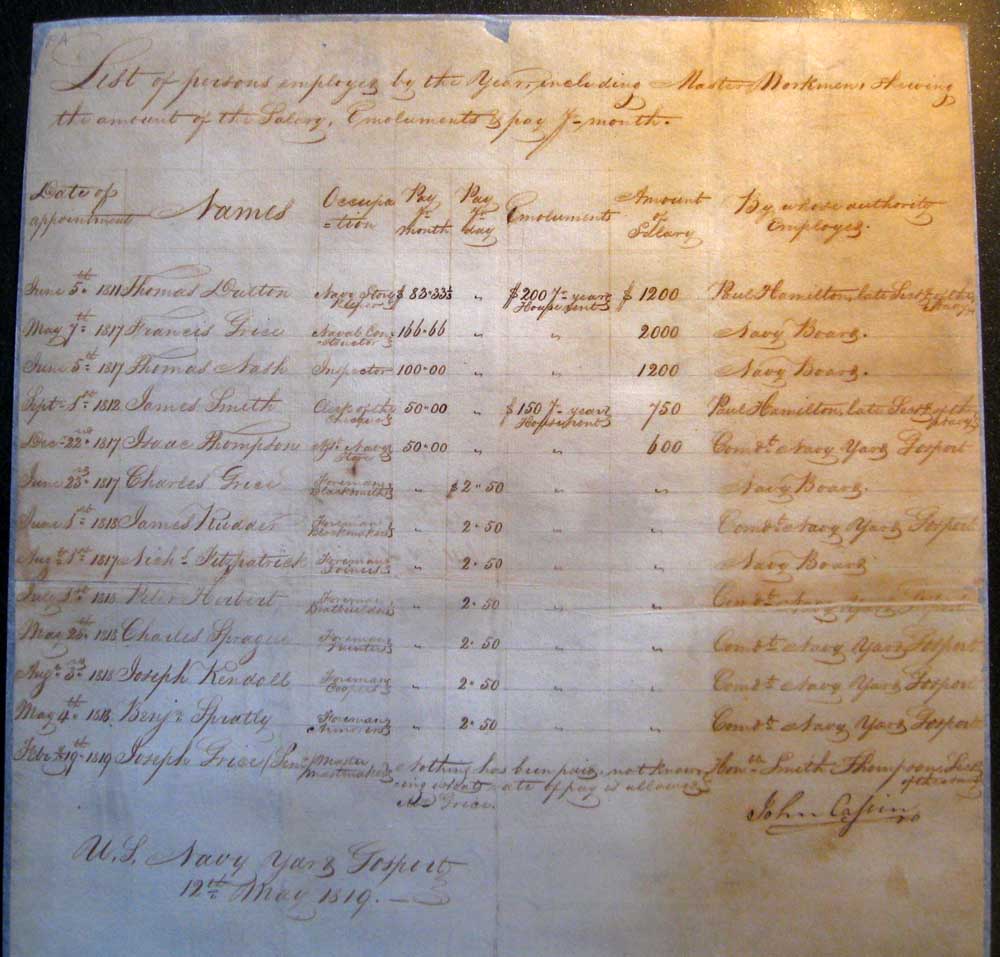 List of persons employed by the Year, including Master Workmen, Shewing
the amount of the Salary, Emoluments & pay pr month.
Date of appointment Names Occupa=tion Pay pr month Pay pr day Emoluments Amount of Salary By whose authority Employed.
June 5th 1811 Thomas Dulton Navy Store Keeper $ 83.33⅓ " $200 pr year House rent $ 1200 Paul Hamilton, late Secty of the Navy
May 7th 1817 Francis Grice Naval Constructor 166.66 " " 2000 Navy Board.
June 5th 1817 Thomas Nash Inspector 100.00 " " 1200 Navy Board.
Sept 1st 1812 James Smith Clerk of the 50.00 " $150 pr year House rent 750 Paul Hamilton, late Secty of the Navy
Dec 22nd 1817 Isaac Thompson Navy Store 50.00 " 600 Comdt Navy Yard Gosport
June 23rd 1817 Charles Grice Foreman Blacksmiths " $2.50 " " Navy Board.
June 1st 1818 James Rudder Foreman Blockmakers " 2.50 " " Comdt Navy Yard Gosport
Augt 1st 1817 Nichs Fitzpatrick Foreman Joiners " 2.50 " " Navy Board
July 1st 1818 Peter Herbert Foreman Boatbuilders " 2.50 " " Comdt Navy Yard Gosport
May 25th 1818 Charles Sprague Foreman Painters " 2.50 " " Comdt Navy Yard Gosport
Augt 3rd 1818 Joseph Kendall Foreman Coopers " 2.50 " " Comdt Navy Yard Gosport
May 4th 1818 Benjn Spratly Foreman Armorers " 2.50 " " Comdt Navy Yard Gosport
Feb 19th 1819 Joseph Grice (Senr) Master Mastmaker Nothing has been paid, not know=ing what rate of pay is allowed Mr Grice. Honble Smith Thompson, Secty of the Navy
John Cassin
U.S. Navy Yard Gosport
12th May 1819.